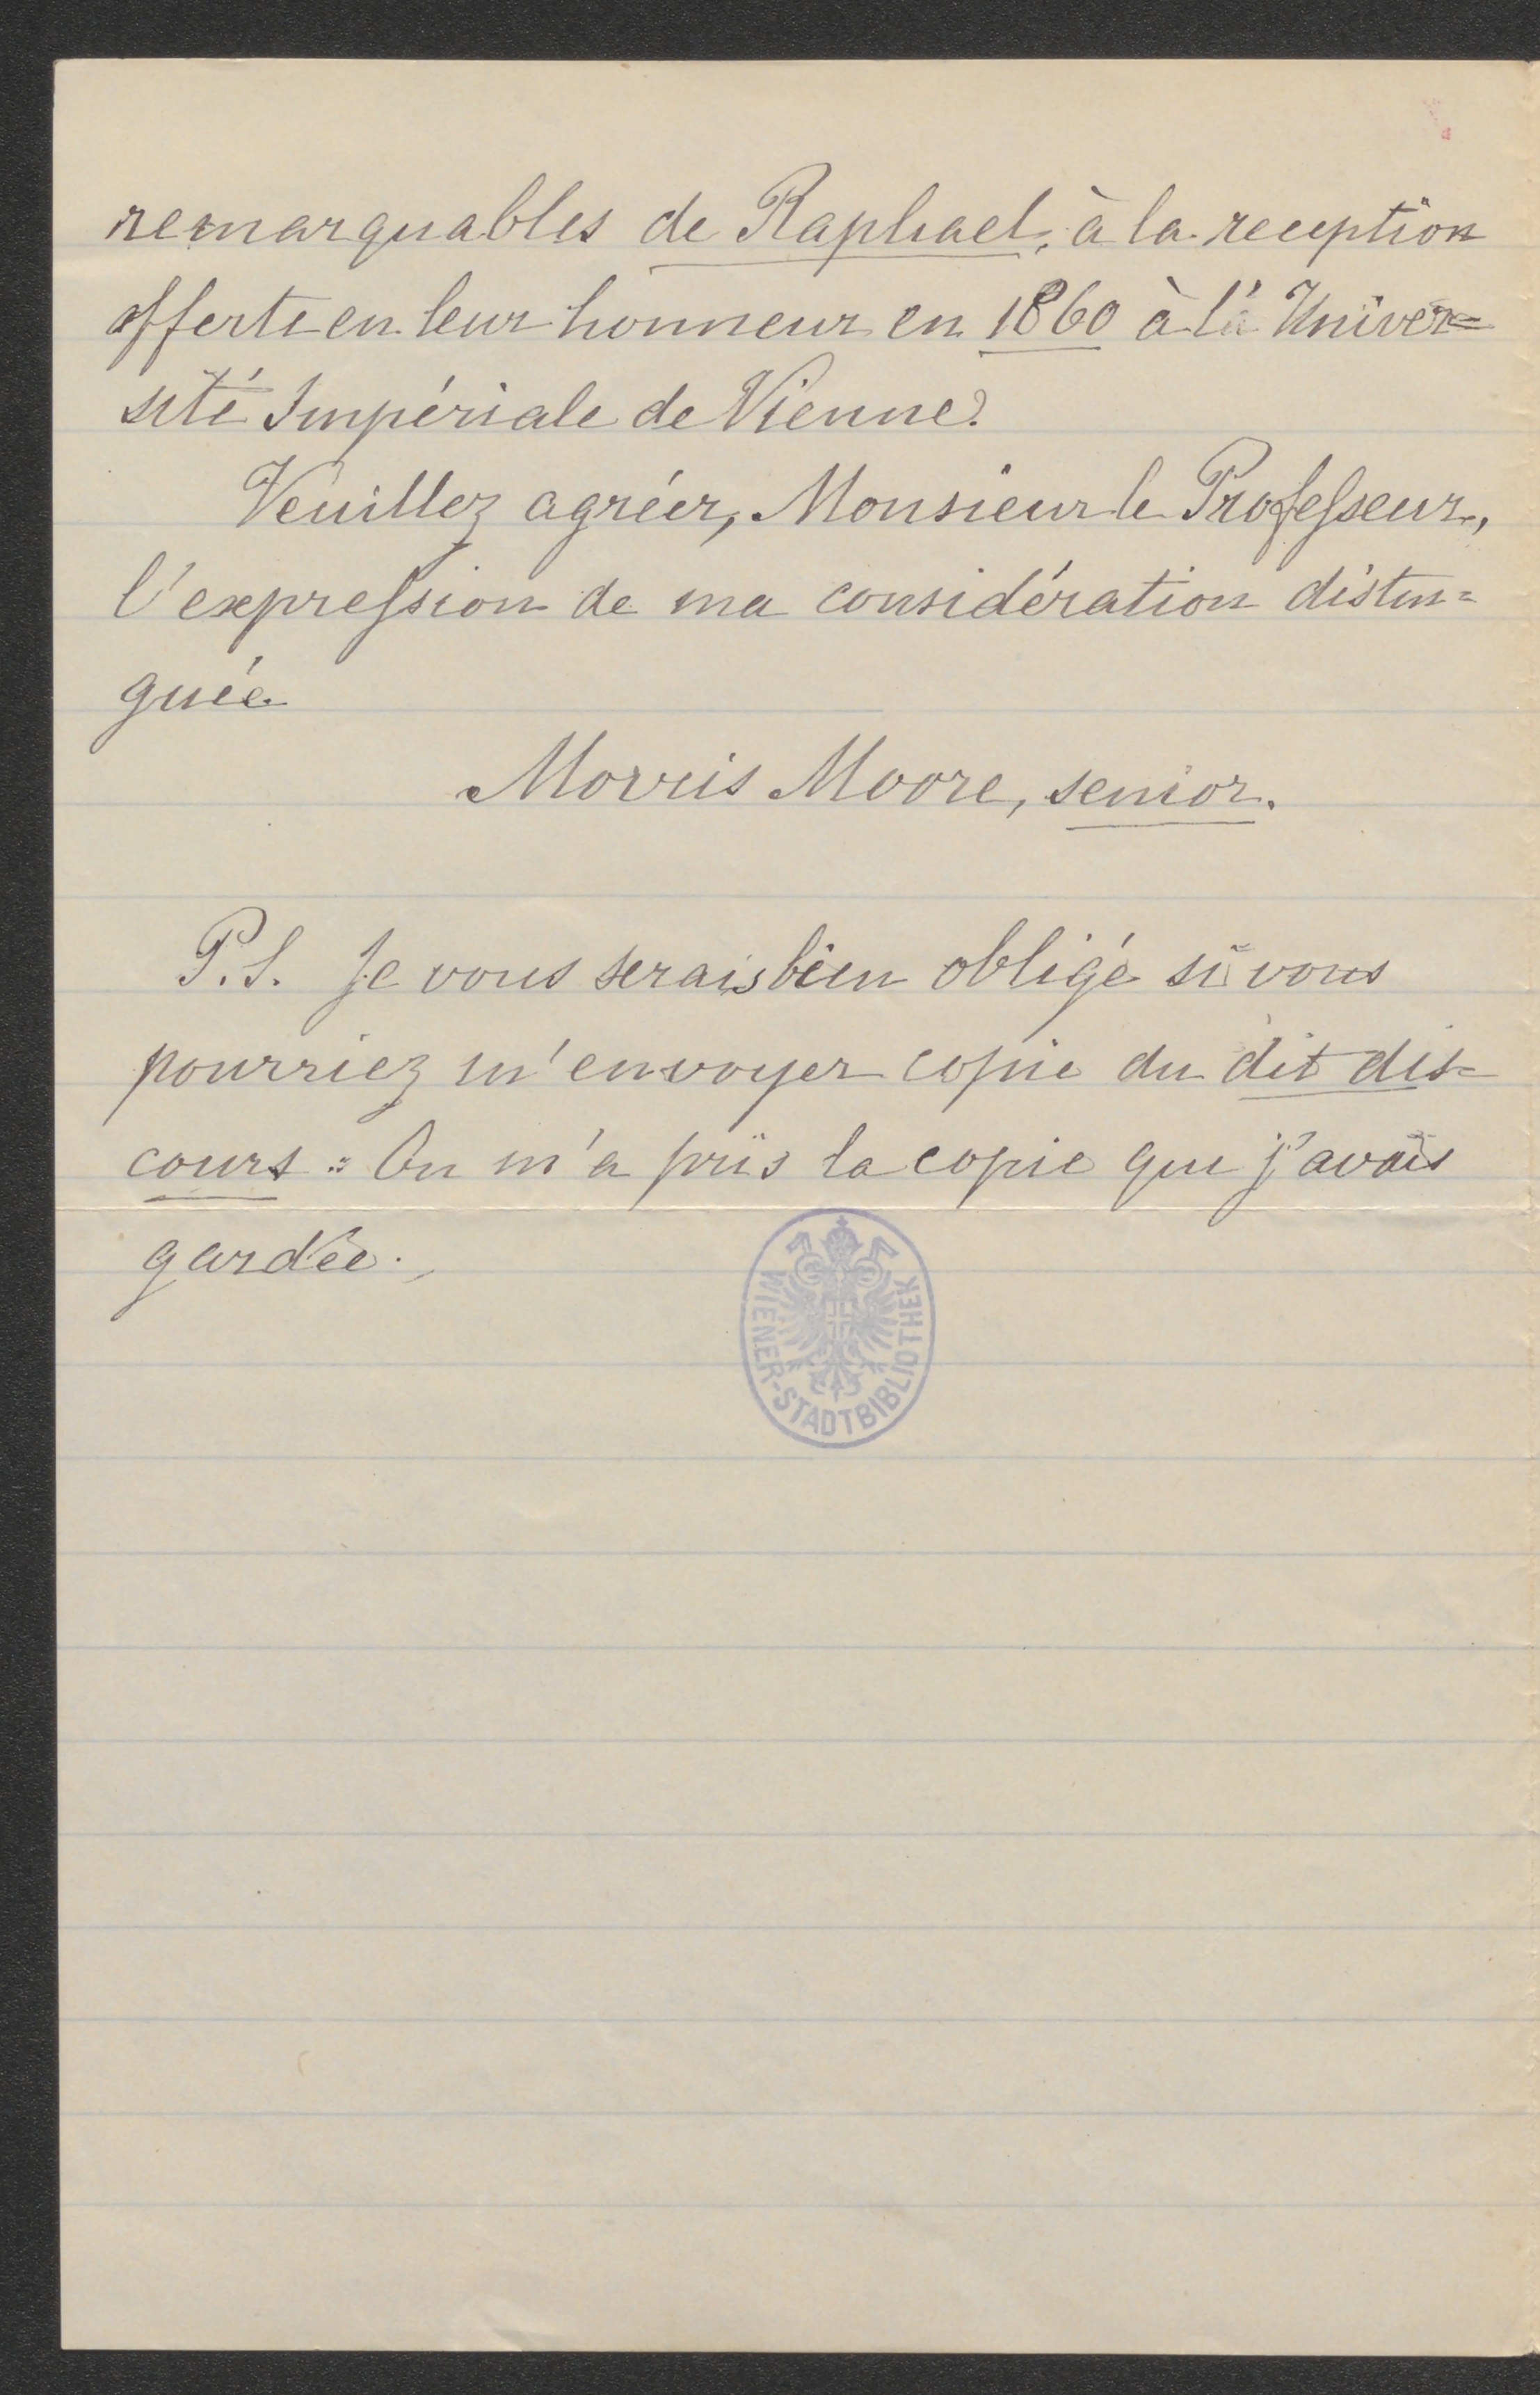 remarquables de Raphael, à la reception
offerte en leur honneur en 1860 à l'Univer=
sité Impériale de Vienne?
Veuillez agréer, Monsieur le Professeur,
l'expression de ma considération distin=
guée
Morris Moore, senior.
P.S. Je vous serais bien obligé si vous
pourriez m'envoyer copie du dit dis=
cours: On m'a pris la copie que j'avais
gardée.
WIENER-STADTBIBLIOTHEK